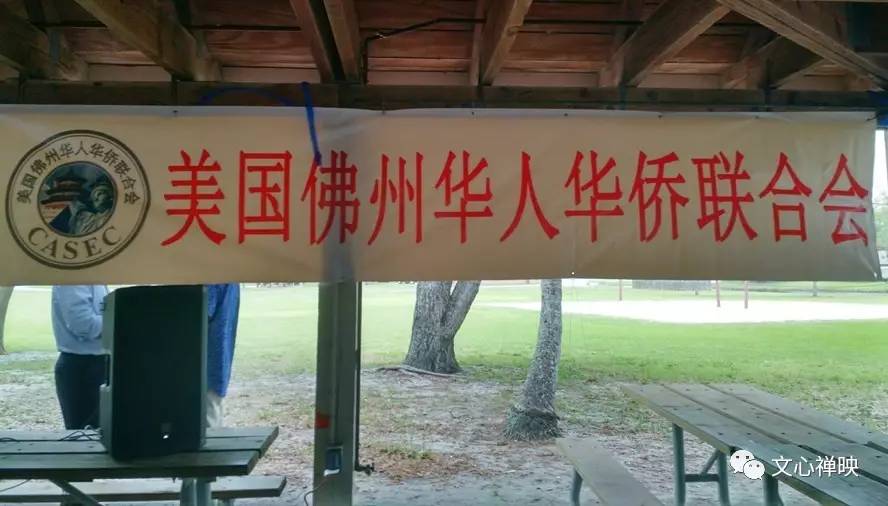 美国佛州华人华侨联合会
CASEC
美国佛州华人华侨联合会
文心禅映